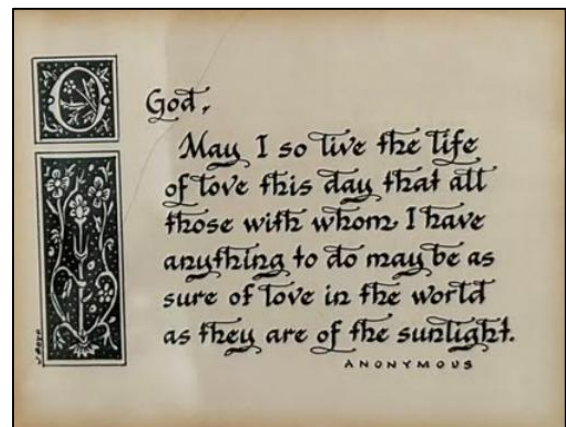 O God,
May I so live the life
of love this day that all
those with whom I have
anything to do may be as
sure of love in the world
as they are of the sunlight.
ANONYMOUS